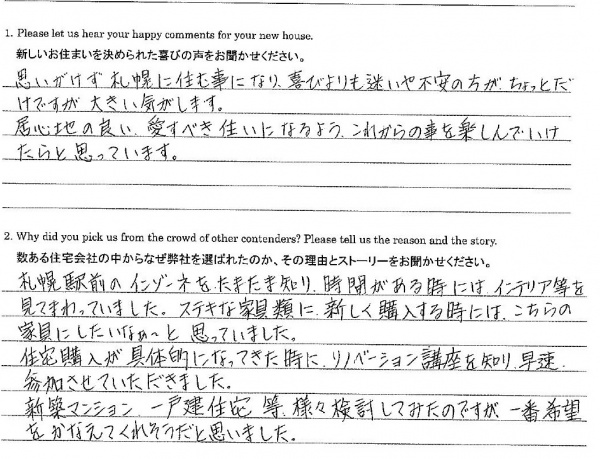 1. Please let us hear your happy comments for your new house.
新しいお住まいを決められた喜びの声をお聞かせください。
思いがけず札幌に住む事になり、喜びよりも迷いや不安の方が、ちょっとだ
けですが大きい気がします。
居心地の良い、愛すべき住いになるよう、これからの事を楽しんでいけ
たらと思っています。
2. Why did you pick us from the crowd of other contenders? Please tell us the reason and the story.
数ある住宅会社の中からなぜ弊社を選ばれたのか、その理由とストーリーをお聞かせください。
札幌駅前のインゾーネをたまたま知り、時間がある時には、インテリア等を
見てまわっていました。ステキな家具類に、新しく購入する時には、こちらの
家具にしたいなぁ〜と思っていました。
住宅購入が具体的になってきた時に、リノベーション講座を知り、早速、
参加させていただきました。
新築マンション、一戸建住宅等、様々検討してみたのですが、一番希望
をかなえてくれそうだと思いました。